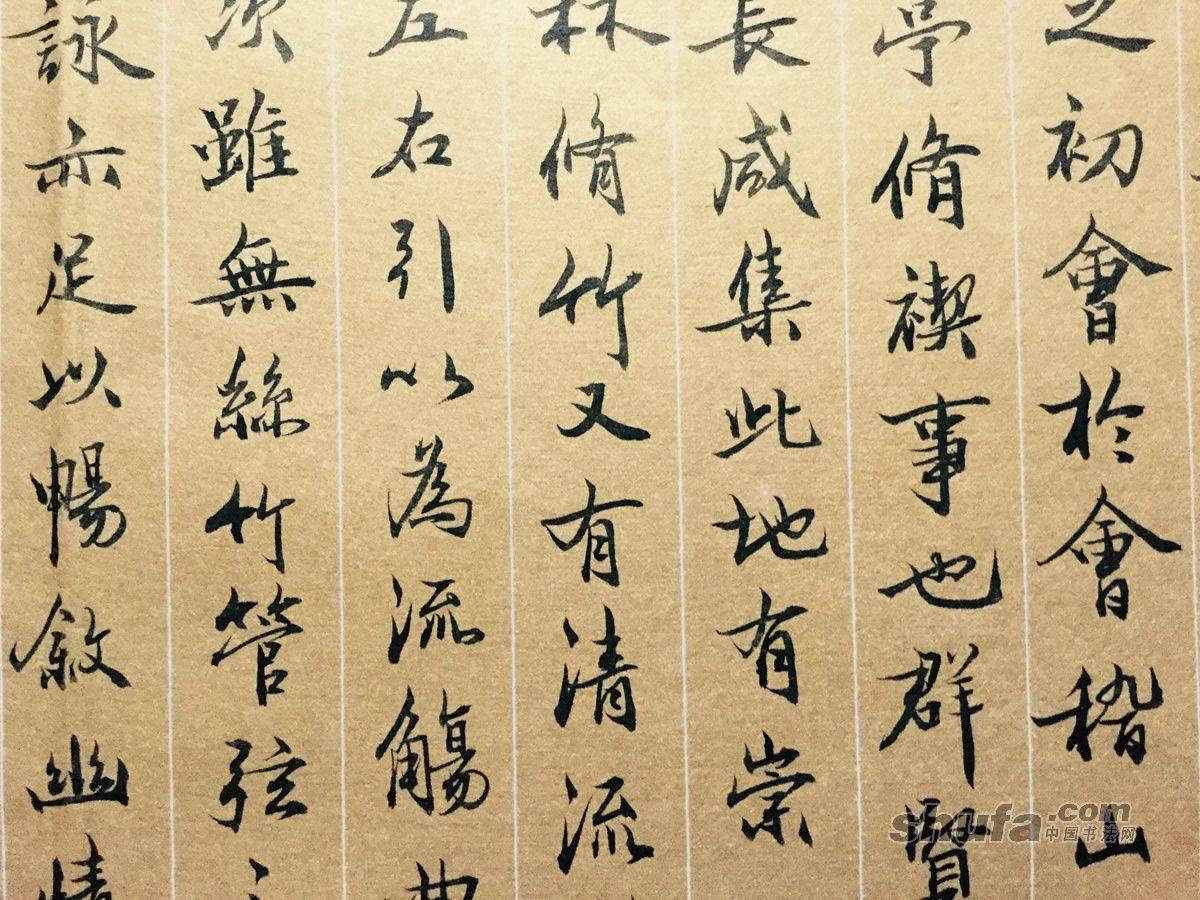 之初會於會稽山
亭脩禊事也群賢
長咸集此地有崇
林脩竹又有清流
左右引以為流觴曲
次雖無絲竹管弦之
詠亦足以暢敘幽情
shufa.com
中国书法网